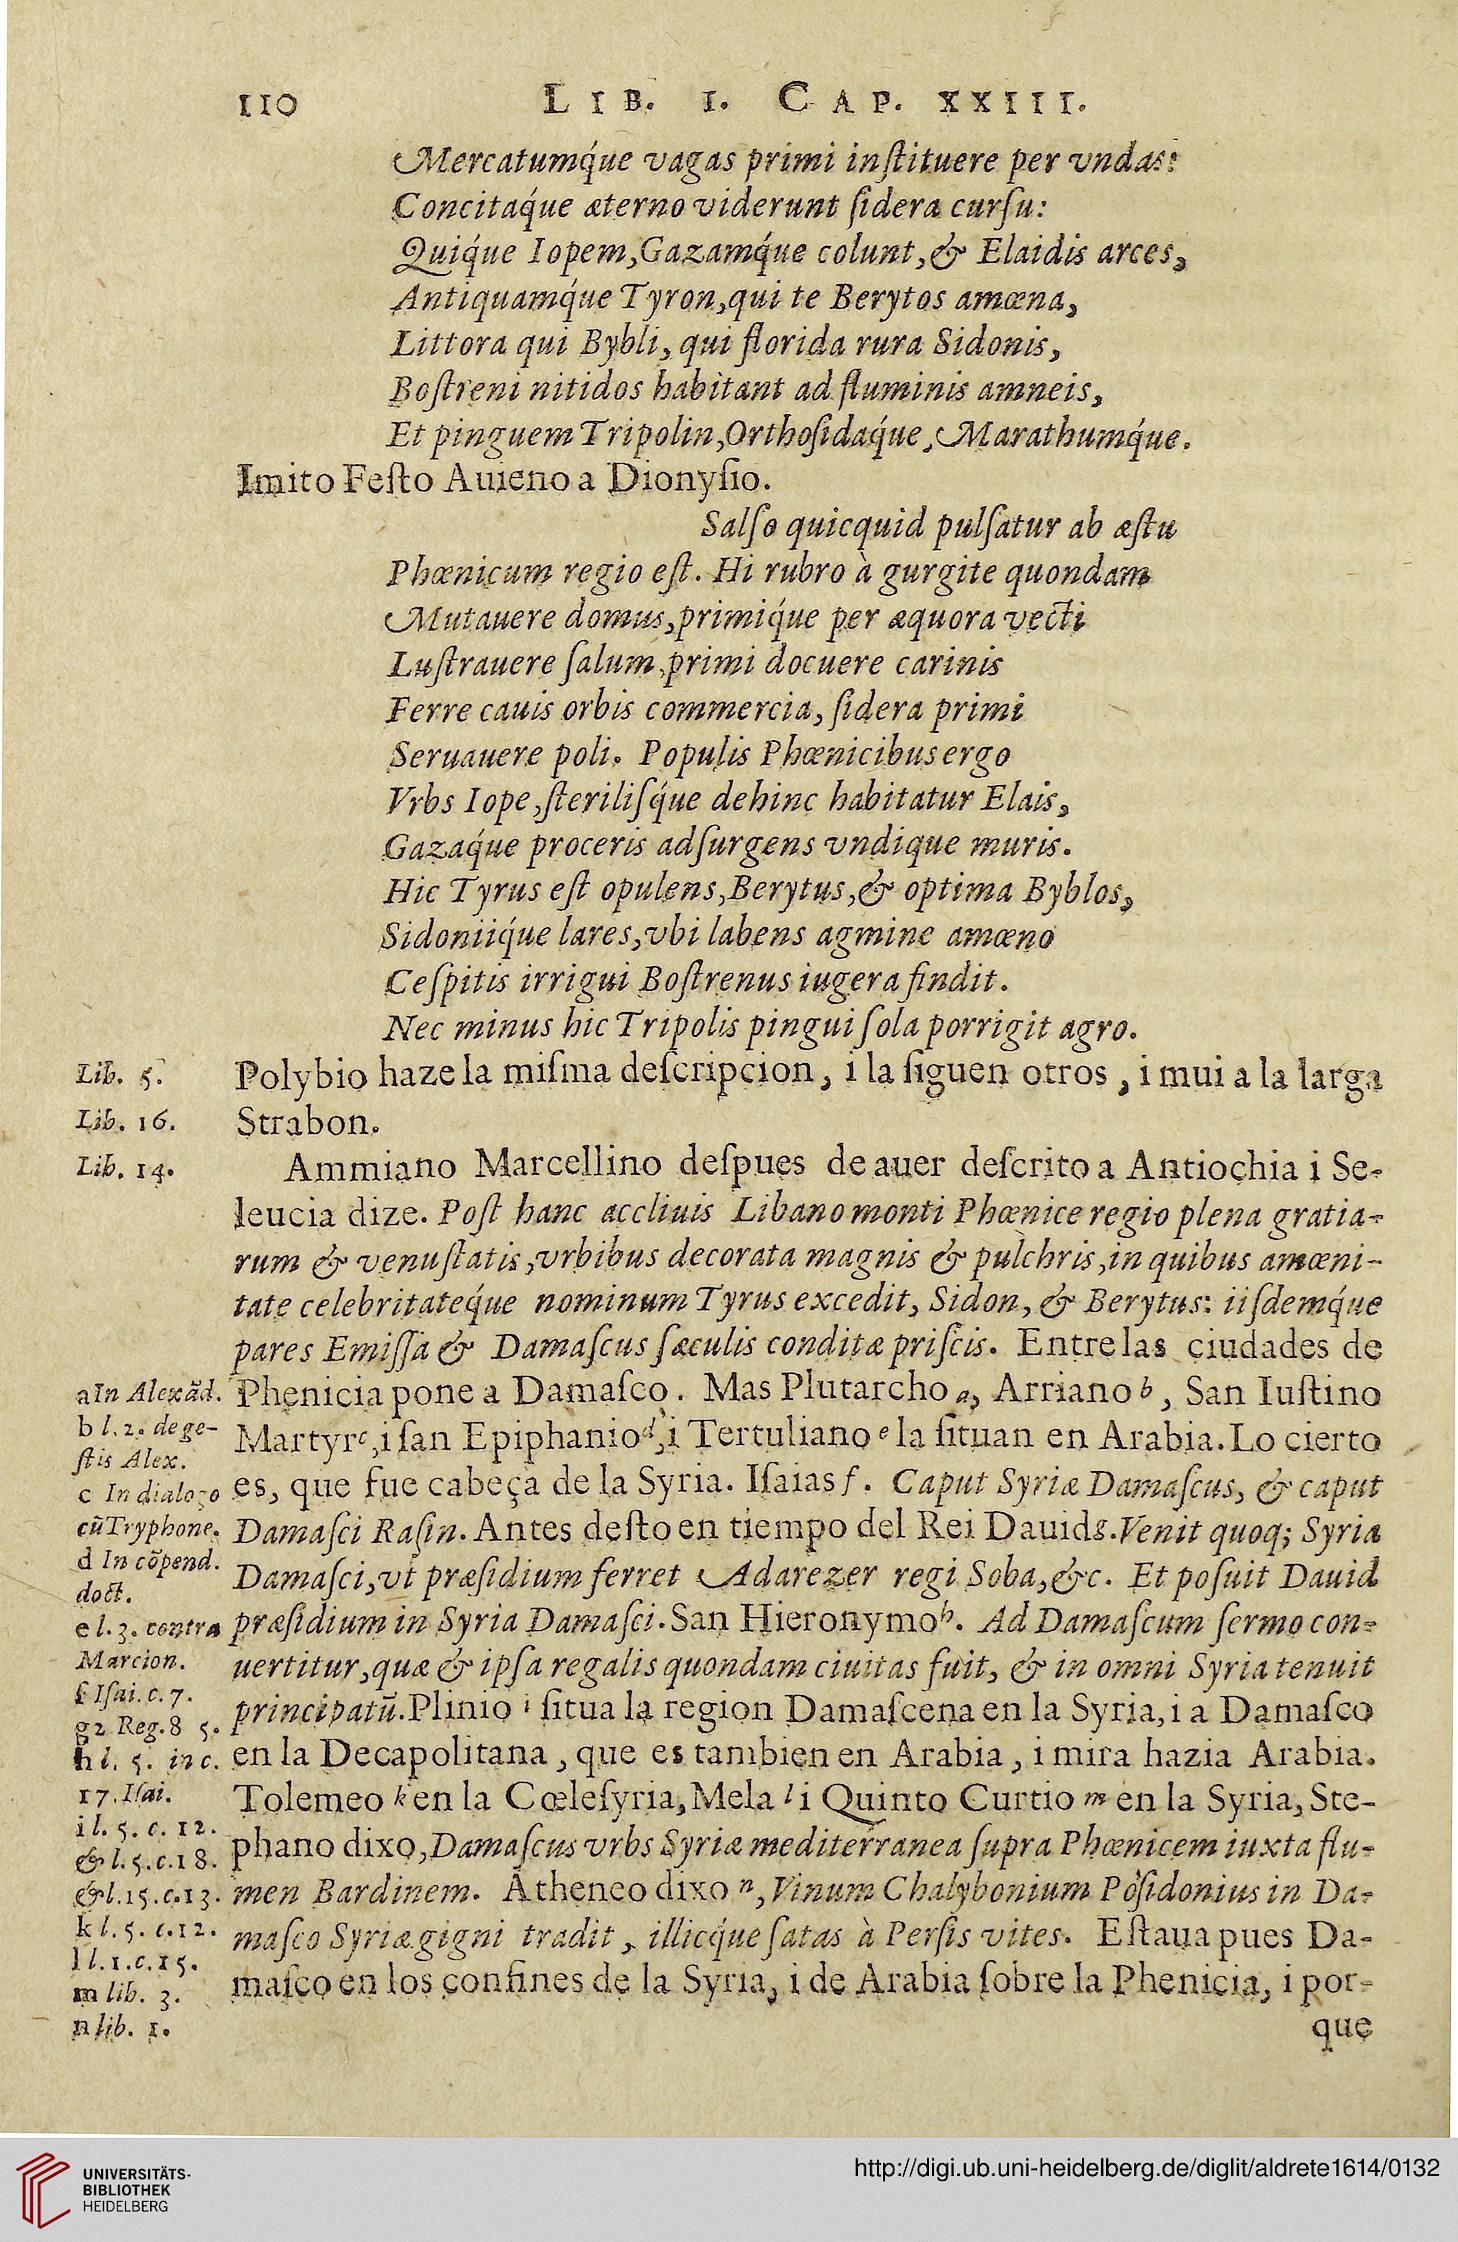 110 LIB. I. CAP. XXIII.
Mercatumq́ue vagas primi inſtituere per vndas:
Concitaq́ue æterno viderunt ſidera curſu:
Quiq́ue Iopem, Gazamq́ue colunt, & Elaidis arces,
Antiquamq́ue Tyron, qui te Berytos amœna,
Littora qui Bybli, qui florida rura Sidonis,
Boſtreni nitidos habitant ad fluminis amneis,
Et pinguem Tripolin, Orthoſidaq́ue, Marathumq́ue.
Imito Feſto Auieno a Dionyſio.
Salſo quicquid pulſatur ab æſtu
Phœnicum regio eſt. Hi rubro à gurgite quondam
Mutauere domus, primiq́ue per æquora vecti
Luſtrauere ſalum, primi docuere carinis
Ferre cauis orbis commercia, ſidera primi
Seruauere poli. Populis Phœnicibus ergo
Vrbs Iope, ſteriliſq́ue dehinc habitatur Elais,
Gazaq́ue proceris adſurgens vndique muris.
Hic Tyrus eſt opulens, Berytus, & optima Byblos,
Sidoniiq́ue lares, vbi labens agmine amœno
Ceſpitis irrigui Boſtrenus iugera findit.
Nec minus hic Tripolis pingui ſola porrigit agro.
Lib. 5. Polybio haze la miſma deſcripcion, i la ſiguen otros, i mui a la larga
Lib. 16. Strabon.
Lib. 14. Ammiano Marcellino deſpues de auer deſcrito a Antiochia i Se-
leucia dize. Poſt hanc accliuis Libano monti Phœnice regio plena gratia-
rum & venuſtatis, vrbibus decorata magnis & pulchris, in quibus amœni-
tate celebritateq́ue nominum Tyrus excedit, Sidon, & Berytus: iiſdemq́ue
pares Emiſſa & Damaſcus ſæculis conditæ priſcis. Entre las ciudades de
Phenicia pone a Damaſco. Mas Plutarcho a, Arriano b, San Iuſtino
Martyr c, i ſan Epiphanio d, i Tertuliano e la ſituan en Arabia. Lo cierto
es, que fue cabeça de la Syria. Iſaias f. Caput Syriæ Damaſcus, & caput
Damaſci Raſin. Antes deſto en tiempo del Rei Dauid g. Venit quoq; Syria
Damaſci, vt præſidium ferret Adarezer regi Soba, &c. Et poſuit Dauid
præſidium in Syria Damaſci. San Hieronymo h. Ad Damaſcum ſermo con-
uertitur, quæ & ipſa regalis quondam ciuitas fuit, & in omni Syria tenuit
principatũ. Plinio i ſitua la region Damaſcena en la Syria, i a Damaſco
en la Decapolitana, que es tambien en Arabia, i mira hazia Arabia.
Tolemeo k en la Cœleſyria, Mela l i Quinto Curtio m en la Syria, Ste-
phano dixo, Damaſcus vrbs Syriæ mediterranea ſupra Phœnicem iuxta flu-
men Bardinem. Atheneo dixo n, Vinum Chalybonium Poſidonius in Da-
maſco Syriæ gigni tradit, illicq́ue ſatas à Perſis vites. Eſtaua pues Da-
maſco en los confines de la Syria, i de Arabia ſobre la Phenicia, i por-
que
a In Alexãd.
b l. 2. de ge-
ſtis Alex.
c In dialogo
cũ Tryphone.
d In cõpend.
doct.
e l. 3. contra
Marcion.
f Iſai. c. 7.
g 2 Reg. 8 5.
h l. 5. in c.
17. Iſai.
i l. 5. c. 12.
& l. 5. c. 18.
& l. 15. c. 13.
k l. 5. c. 12.
l l. 1. c. 15.
m lib. 3.
n lib. 1.
UNIVERSITÄTS-
BIBLIOTHEK
HEIDELBERG
http://digi.ub.uni-heidelberg.de/diglit/aldrete1614/0132